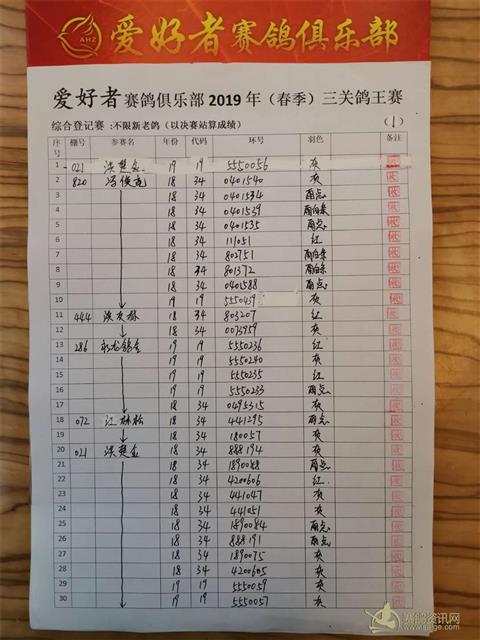 AHZ
爱好者赛鸽俱乐部
爱好者赛鸽俱乐部 2019 年（春季）三关鸽王赛
综合登记赛：不限新老鸽（以决赛站算成绩） (1)
序号 棚号 参赛名 年份 代码 环号 羽色 备注
1 021 19 19 5550056 灰
2 820 冯俊龙 18 34 0401540 灰
3 18 34 0401534 雨点
4 18 34 0401539 雨白条
5 18 34 0401535 雨点
6 18 34 111051 红
7 18 34 802751 雨白条
8 18 34 801372 雨白条
9 18 34 0401588 雨点
10 19 19 5550459 灰
11 444 18 34 803207 红
12 18 34 0073959 灰
13 286 19 19 5550236 红
14 19 19 5550240 灰
15 19 19 5550235 红
16 19 19 5550233 雨点
17 18 34 0495315 灰
18 072 江林松 18 34 441295 雨点
19 18 34 180057 灰
20 021 18 34 888194 灰
21 18 34 1890088 雨点
22 18 34 4200606 红
23 18 34 441047 灰
24 18 34 441051 灰
25 18 34 1890084 雨点
26 18 34 888191 雨点
27 18 34 1890075 灰
28 18 34 4200605 灰
29 19 19 5550059 灰
30 19 19 5550057 灰
赛鸽资讯网